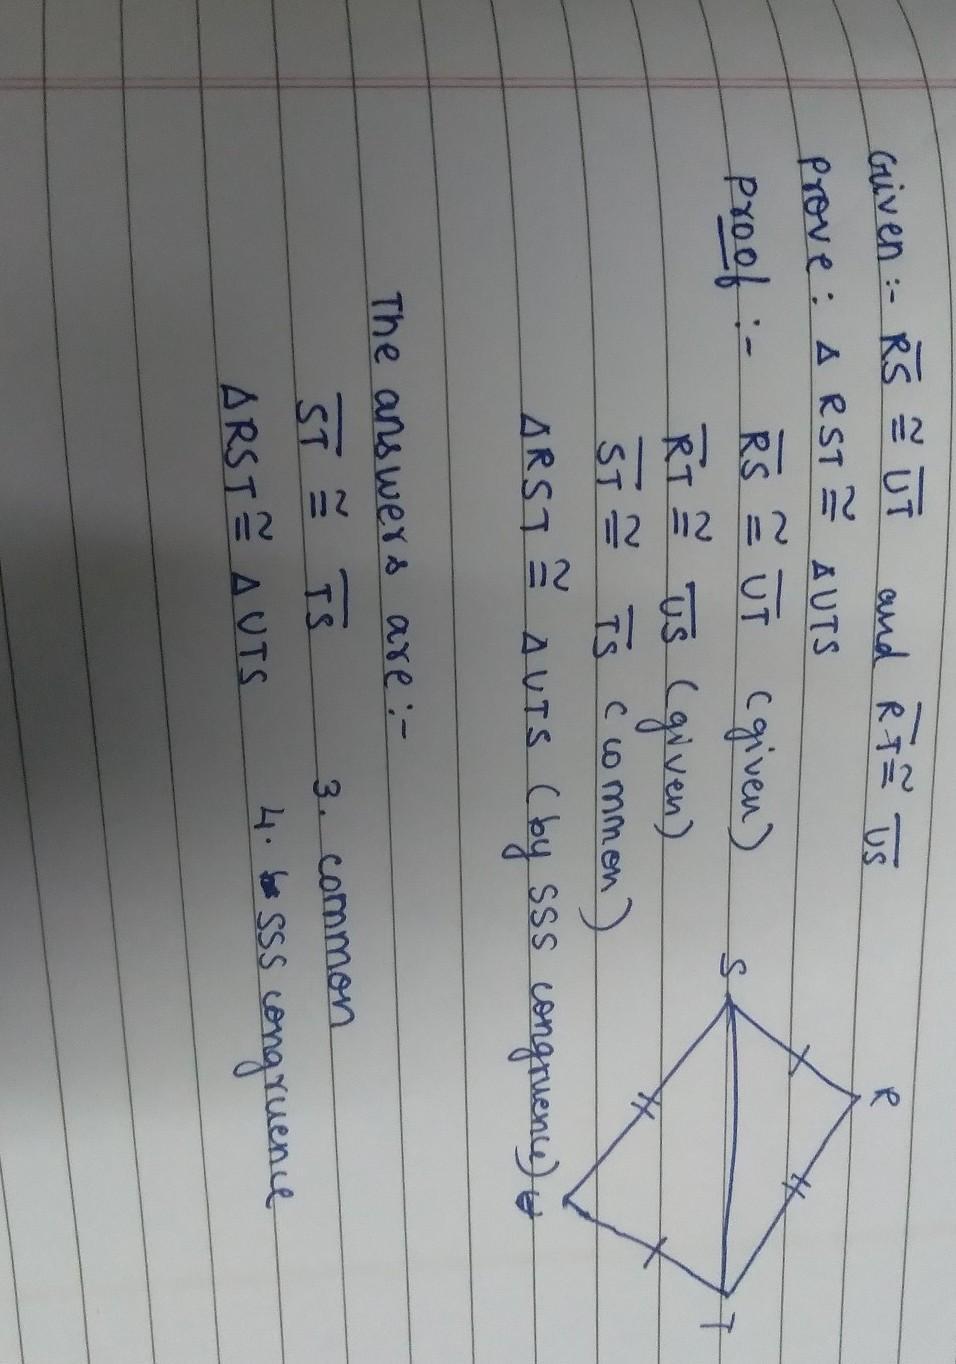 Given :- R̅S̅ ≅ U̅T̅ and R̅T̅ ≅ U̅S̅
Prove : Δ RST ≅ ΔUTS
Proof :- R̅S̅ ≅ U̅T̅ (given)
R̅T̅ ≅ U̅S̅ (given)
S̅T̅ ≅ T̅S̅ (common)
ΔRST ≅ ΔUTS (by SSS congruence)
R
S
T
The answers are :-
S̅T̅ ≅ T̅S̅ 3. common
ΔRST ≅ ΔUTS 4. SSS congruence